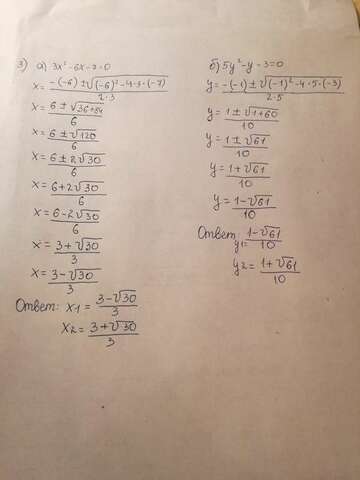 3) а) 3x² - 6x - 7 = 0
x = -(-6) ± √(-6)² - 4·3·(-7) / 2·3
x = 6 ± √36+84 / 6
x = 6 ± √120 / 6
x = 6 ± 2√30 / 6
x = 6+2√30 / 6
x = 6-2√30 / 6
x = 3+√30 / 3
x = 3-√30 / 3
Ответ: x₁ = 3-√30 / 3
x₂ = 3+√30 / 3
б) 5y² - y - 3 = 0
y = -(-1) ± √(-1)² - 4·5·(-3) / 2·5
y = 1 ± √1+60 / 10
y = 1 ± √61 / 10
y = 1+√61 / 10
y = 1-√61 / 10
Ответ: y₁ = 1-√61 / 10
y₂ = 1+√61 / 10